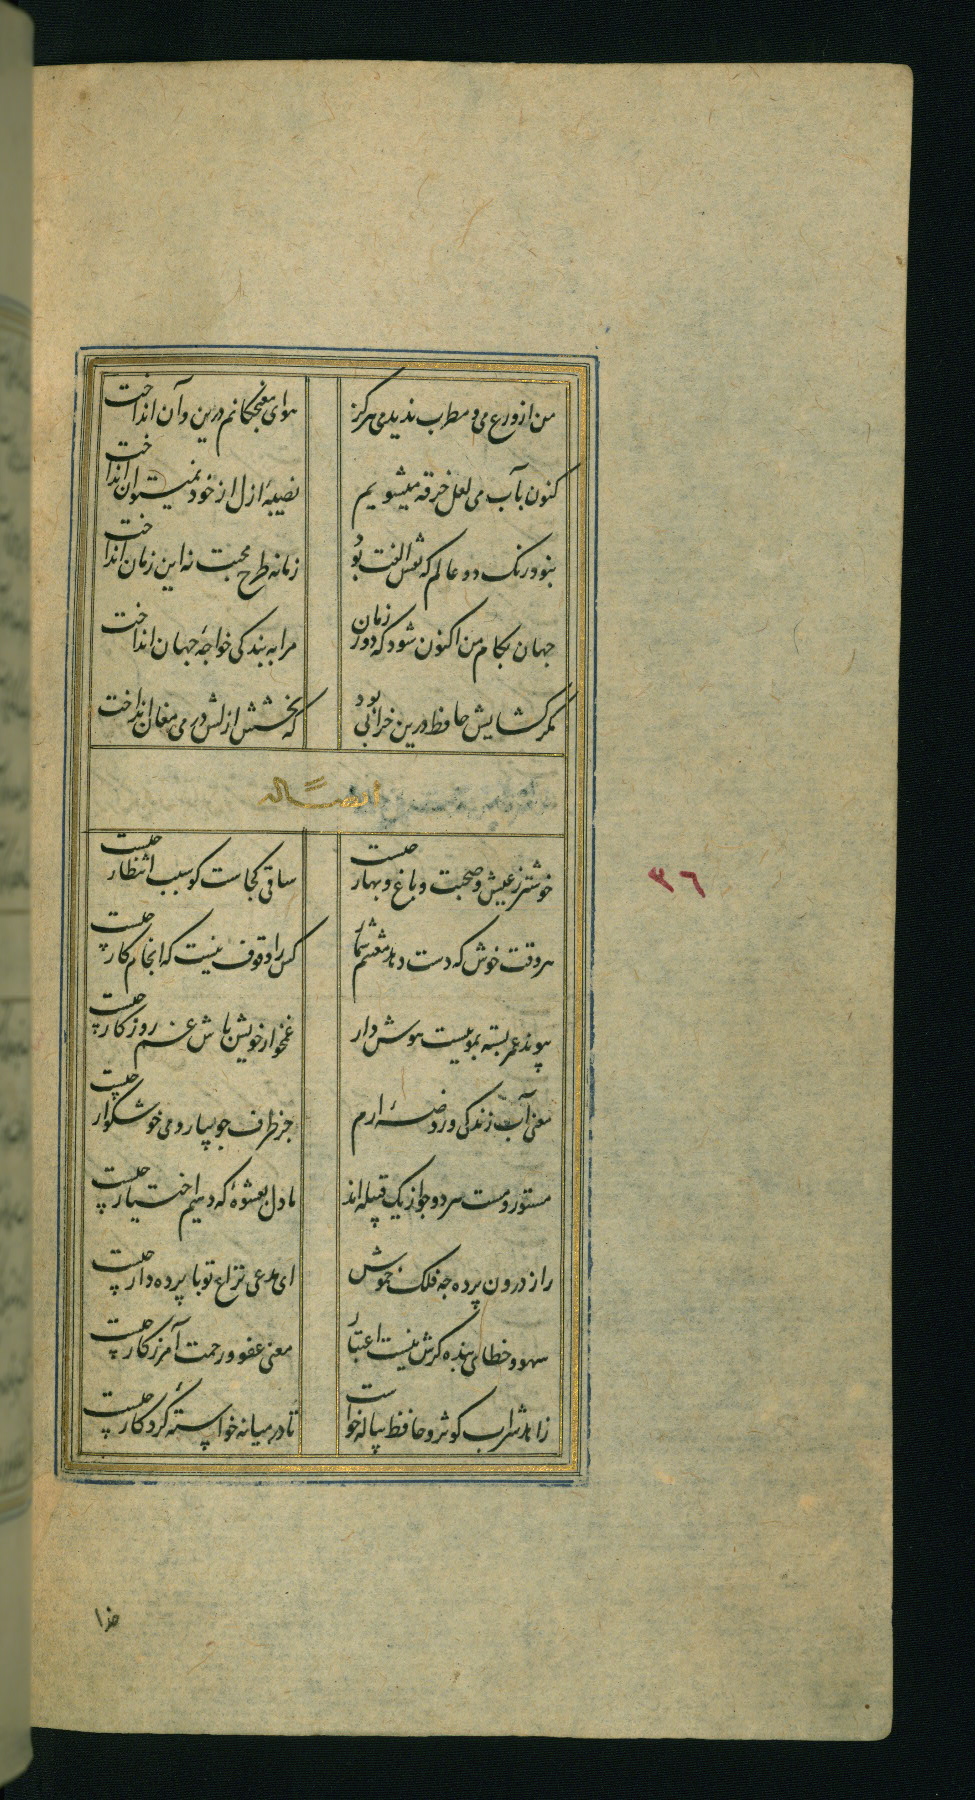 من از ورع می و مطرب ندیدمی هرگز هوای مغبچگانم درین و آن انداخت
کنون بآب می لعل خرقه میشویم نصیبهٔ ازل از خود نمیتوان انداخت
نبود رنک دو عالم که نقش الفت بود زمانه طرح محبت نه این زمان انداخت
جهان بکام من اکنون شود که دور زمان مرا به بندکی خواجهٔ جهان انداخت
مکر کشایش حافظ درین خرابی بود که بخشش ازلش در می مغان انداخت
ایضاً له
خوشتر ز عیش و صحبت و باغ و بهار چیست ساقی کجاست کو سبب انتظار چیست
هر وقت خوش که دست دهد مغتنم شمار کس را وقوف نیست که انجام کار چیست
پیوند عمر بسته بموییست هوش دار غمخوار خویش باش غم روزکار چیست
معنی آب زندکی و روضهٔ ارم جز طرف جویبار و می خوشکوار چیست
مستور و مست هر دو چو از یک قبیله اند ما دل بعشوهٔ که دهیم اختیار چیست
راز درون پرده چه فلک خموش ای مدعی نزاع تو با پرده دار چیست
سهو و خطای بنده کرش نیست اعتبار معنی عفو و رحمت آمرزکار چیست
زاهد شراب کوثر و حافظ پیاله خواست تا در میانه خواستهٔ کردکار چیست
٣٦